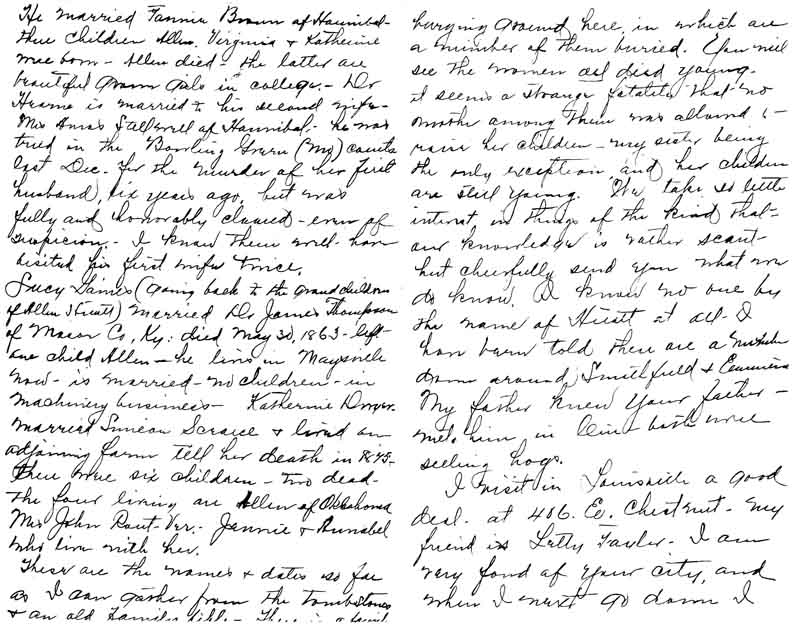 He married Fannie Brown of Hannibal-
three children Allen, Virginia & Katherine
was born - Allen died - the latter are
beautiful grown girls in college. - Dr
Hearne is married to his second wife -
Mrs Amos Stillwell of Hannibal - he was
tried in the Bowling Green (Mo) courts
last Dec. for the murder of her first
husband, six years ago, but was
fully and honorably cleared - even of
suspicion. - I knew them well - have
visited his first wife twice.
Lucy (Going back to the grandchildren
of Allen) married Dr James Thompson
of Mason Co, Ky: died May 30, 1863 - left
one child Allen - he lives in Maysville
now - is married - no children - in
machinery business - Katherine
married Simeon & lived on
adjoining farm till her death in 1875-
There were six children - two dead -
the four living are Allen of Oklahoma
Mrs John Rout - Ver. - Jennie & Annabel
who live with her.
These are the names & dates so far
as I can gather from the tombstones
& an old Families Bible. - is a
burying ground here in which are
a number of them buried. You will
see the women all died young.
it seems a strange fatality that no
mother among them was allowed to
raise her children - my sister being
the only exception, and her children
are still young. We take so little
interest in things of the kind that -
our knowledge is rather scant -
but cheerfully send you what we
do know. I know no one by
the name of Hiatt at all - I
have been told there are a number
down around Smithfield & Eminence
My father knew your father -
met him in - both were
selling hogs.
I visit in Louisville a good
deal. at 406. E. Chestnut - my
friend is Letty - I am
very fond of your city, and
when I next go down I